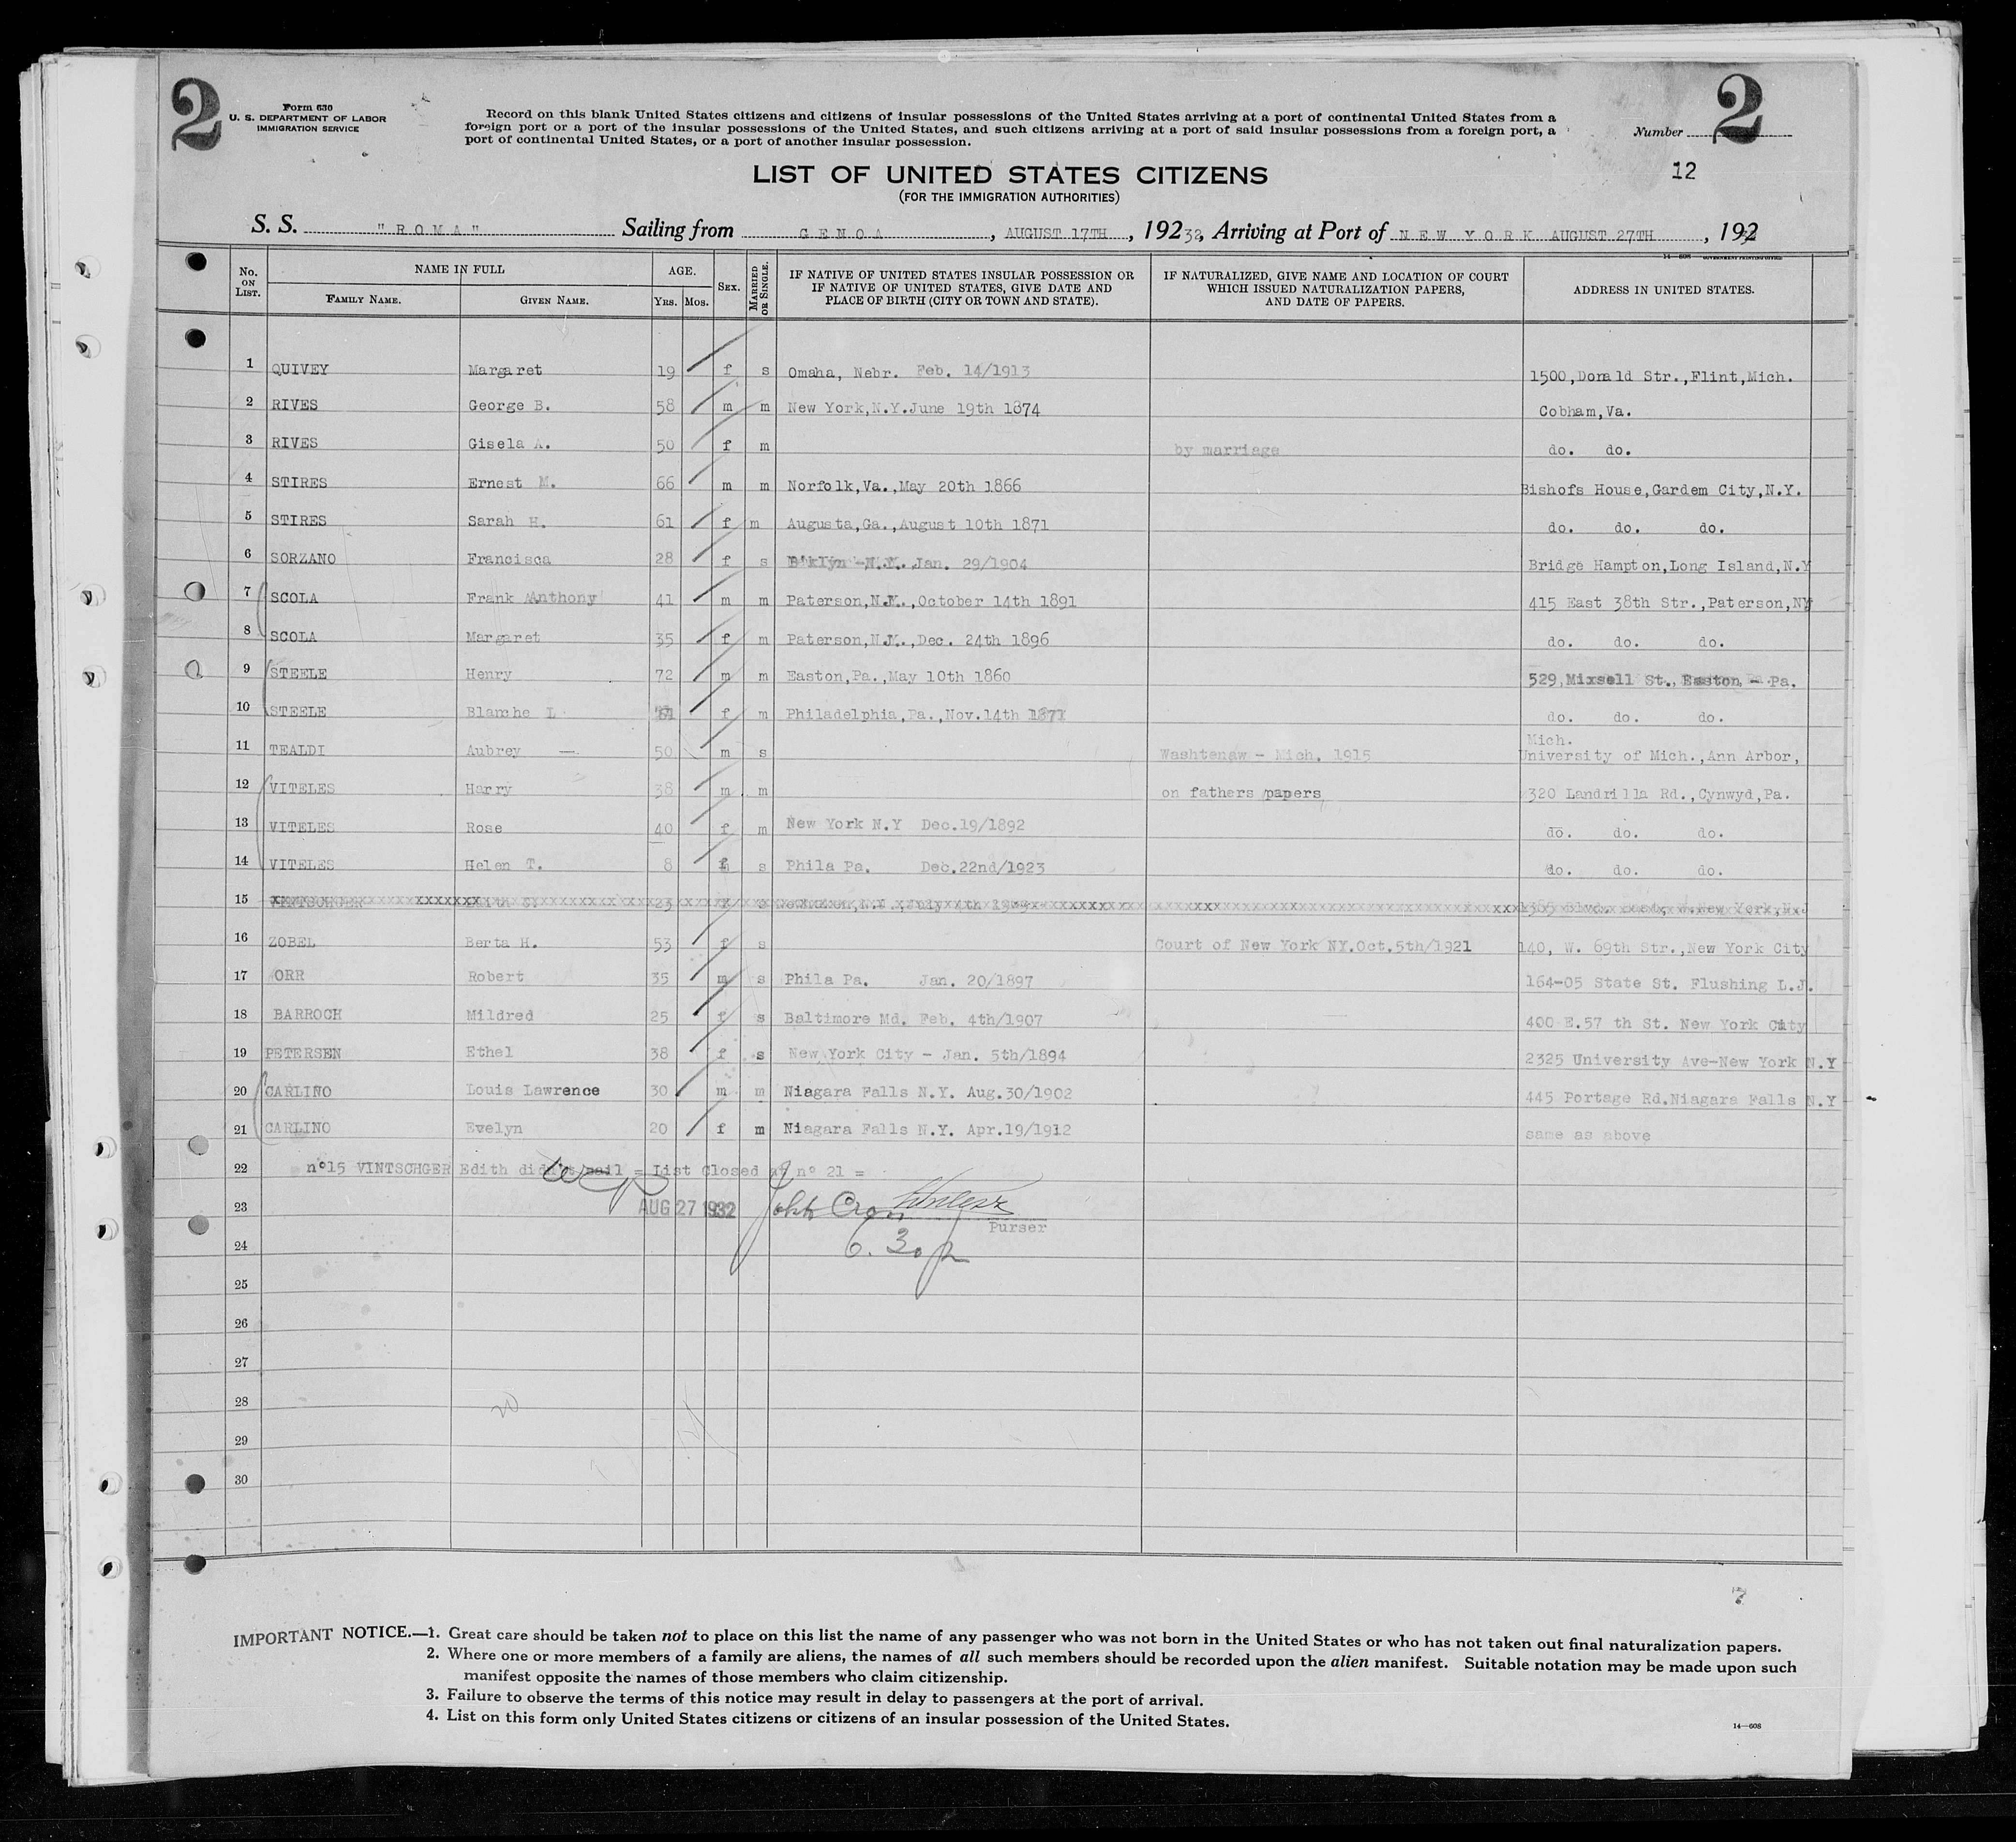 2 2
Form 630
U. S. DEPARTMENT OF LABOR
IMMIGRATION SERVICE
Record on this blank United States citizens and citizens of insular possessions of the United States arriving at a port of continental United States from a
foreign port or a port of the insular possessions of the United States, and such citizens arriving at a port of said insular possessions from a foreign port, a
port of continental United States, or a port of another insular possession.
Number
12
LIST OF UNITED STATES CITIZENS
(FOR THE IMMIGRATION AUTHORITIES)
S. S. "ROMA" Sailing from GENOA, AUGUST 17TH, 19232, Arriving at Port of NEW YORK AUGUST 27TH, 192
14—608 GOVERNMENT PRINTING OFFICE
No. ON LIST. NAME IN FULL FAMILY NAME. GIVEN NAME. AGE. YRS. MOS. SEX. MARRIED OR SINGLE. IF NATIVE OF UNITED STATES INSULAR POSSESSION OR IF NATIVE OF UNITED STATES, GIVE DATE AND PLACE OF BIRTH (CITY OR TOWN AND STATE). IF NATURALIZED, GIVE NAME AND LOCATION OF COURT WHICH ISSUED NATURALIZATION PAPERS, AND DATE OF PAPERS. ADDRESS IN UNITED STATES.
1 QUIVEY Margaret 19 f s Omaha, Nebr. Feb. 14/1913 1500,Donald Str.,Flint,Mich.
2 RIVES George B. 58 m m New York,N.Y.June 19th 1874 Cobham,Va.
3 RIVES Gisela A. 50 f m by marriage do. do.
4 STIRES Ernest M. 66 m m Norfolk,Va.,May 20th 1866 Bishofs House,Gardem City,N.Y.
5 STIRES Sarah H. 61 f m Augusta,Ga.,August 10th 1871 do. do. do.
6 SORZANO Francisca 28 f s Bklyn -N.Y. Jan. 29/1904 Bridge Hampton,Long Island,N.Y
7 SCOLA Frank Anthony 41 m m Paterson,N.J.,October 14th 1891 415 East 38th Str.,Paterson,NJ
8 SCOLA Margaret 35 f m Paterson,N.J.,Dec. 24th 1896 do. do. do.
9 STEELE Henry 72 m m Easton,Pa.,May 10th 1860 529,Mixsell St., Easton - Pa.
10 STEELE Blanche L 61 f m Philadelphia,Pa.,Nov.14th 1871 do. do. do.
11 TEALDI Aubrey — 50 m s Washtenaw - Mich. 1915 University of Mich.,Ann Arbor, Mich.
12 VITELES Harry 38 m m on fathers papers 320 Landrilla Rd.,Cynwyd,Pa.
13 VITELES Rose 40 f m New York N.Y Dec.19/1892 do. do. do.
14 VITELES Helen T. 8 f s Phila Pa. Dec.22nd/1923 do. do. do.
15 23 s July 4th New York,N.J
16 ZOBEL Berta H. 53 f s Court of New York NY.Oct.5th/1921 140, W. 69th Str.,New York City
17 ORR Robert 35 m s Phila Pa. Jan. 20/1897 164-05 State St. Flushing L.J.
18 BARROCH Mildred 25 f s Baltimore Md. Feb. 4th/1907 400 E.57 th St. New York City
19 PETERSEN Ethel 38 f s New York City - Jan. 5th/1894 2325 University Ave-New York N.Y
20 CARLINO Louis Lawrence 30 m m Niagara Falls N.Y. Aug.30/1902 445 Portage Rd.Niagara Falls N.Y
21 CARLINO Evelyn 20 f m Niagara Falls N.Y. Apr.19/1912 same as above
22 n°15 VINTSCHGER Edith didn't sail = List Closed at n° 21 =
23 AUG 27 1932 John
Purser
24 6.30 p
25
26
27
28
29
30
IMPORTANT NOTICE.—1. Great care should be taken not to place on this list the name of any passenger who was not born in the United States or who has not taken out final naturalization papers.
2. Where one or more members of a family are aliens, the names of all such members should be recorded upon the alien manifest. Suitable notation may be made upon such
manifest opposite the names of those members who claim citizenship.
3. Failure to observe the terms of this notice may result in delay to passengers at the port of arrival.
4. List on this form only United States citizens or citizens of an insular possession of the United States.
14—608